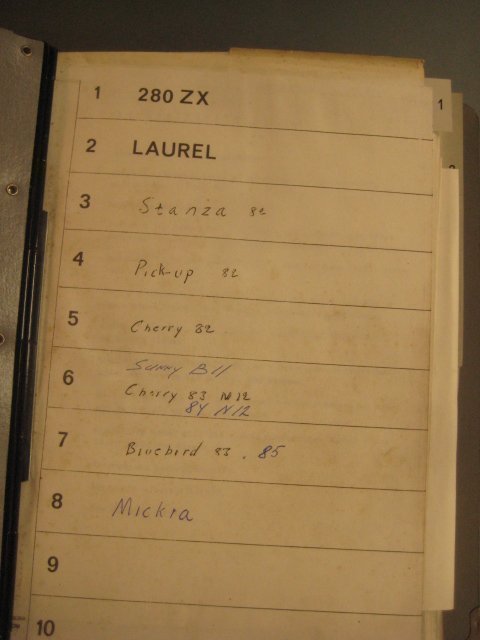 1 280 ZX
1
2 LAUREL
3 Stanza 82
4 Pick-up 82
5 Cherry 82
Sunny B11
6 Cherry 83 N12
84 N12
7 Bluebird 83. 85
8 Mickra
9
10